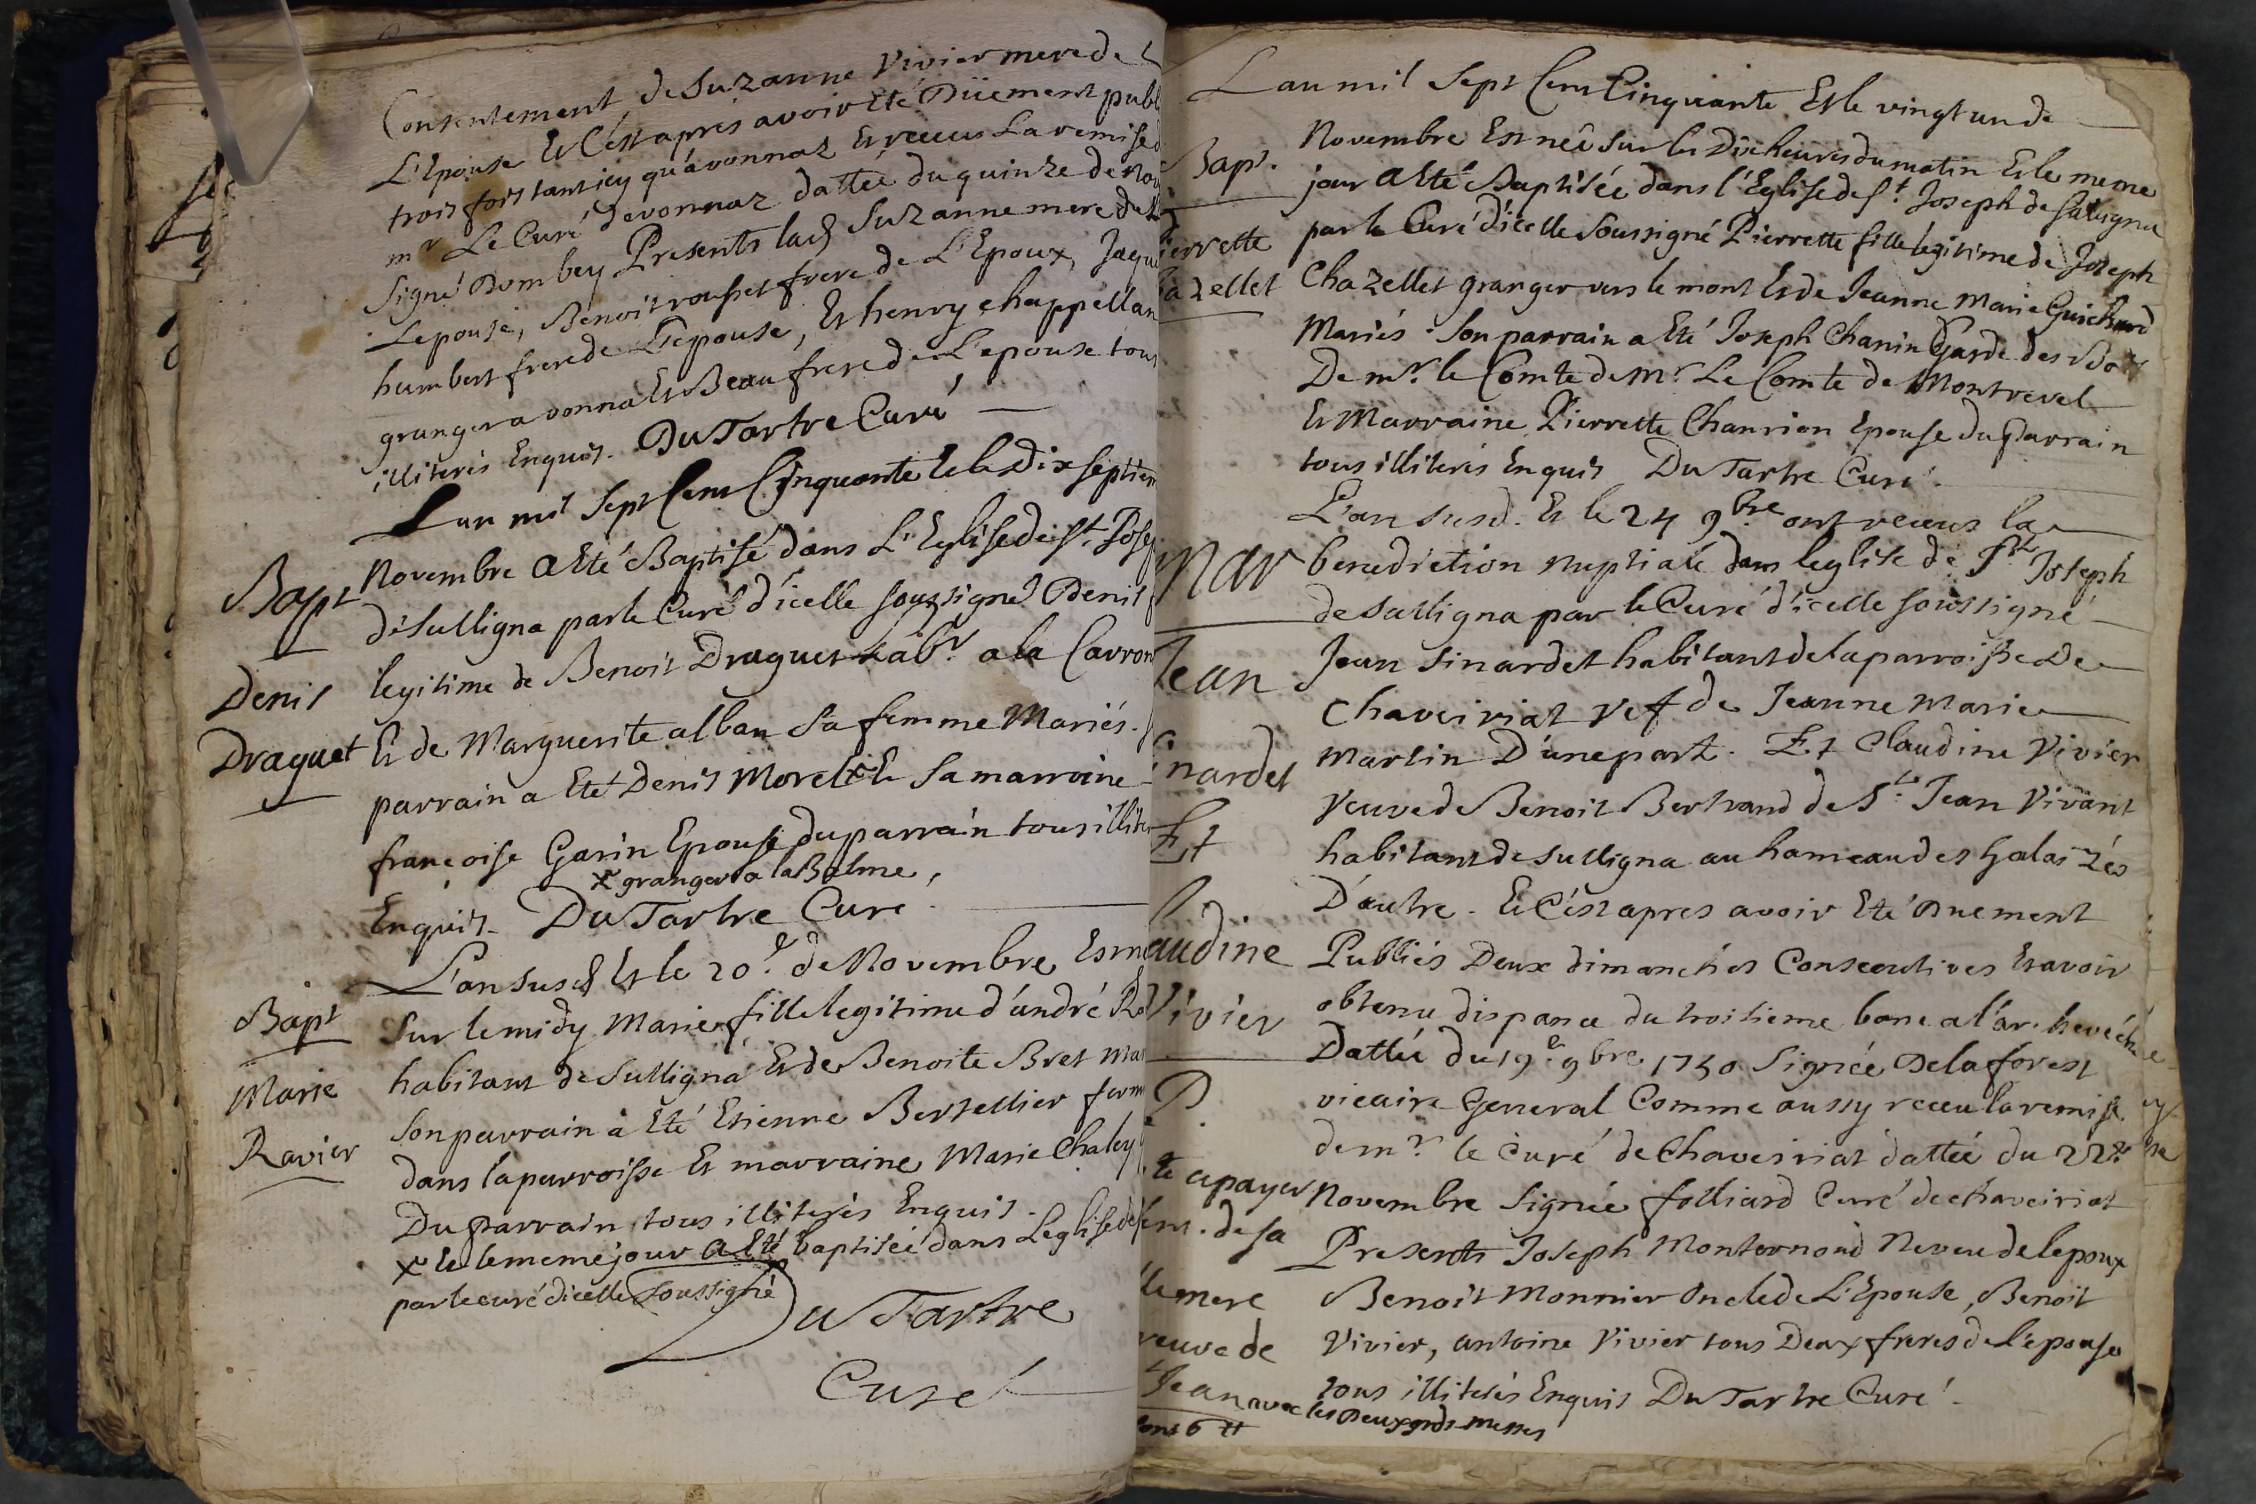 Consentement de Suzanne Vivier mere de
L'Epouse Et C'est apres avoir Eté Düement publ
trois fois tant icy qu'a vonnaz Et receus La remise d
mr Le Curé de vonnaz dattée du quinze de Nov
Signé Dombey Presents lad Suzanne mere de
Lepouse, Benoit rousset frere de L'Epoux, Jaque
humbert frere de L'Epouse, Et henry chappellan
granger a vonna Et Beau frere de L'epouse tous
illiterés Enquis. DuTartre Curé
Lan mil Sept Cent Cinquante Et le dix septiem
Bapt
Novembre a Eté Baptisé dans L'Eglise de St. Josep
de Sulligna par le Curé d'icelle soussigné Denis f
Denis
legitime de Benoit Draguet Labr. a la Cavronn
Draguet
Et de Marguerite alban Sa femme Mariés. S
parrain a Eté Denis Morel x Et Sa marraine
françoise Garin Epouse du parrain tous illiter
x granger a la Balme,
Enquis. DuTartre Curé
L'an susd Et le 20e. de Novembre Est né
Bapt
Sur le midy Marie x fille legitime d'andré Ra
Marie
habitant de Sulligna Et de Benoite Bret Mar
Ravier
Son parrain a Eté Etienne Bertellier ferm
dans la parroisse Et marraine Marie Chaley
Du parrain tous illiterés Enquis.
x Et le meme jour a Eté baptisée dans Leglise de S
par le curé dicelle soussigné
DuTartre
Curé
Lan mil Sept Cent Cinquante Et le vingt un de
Bapt.
Novembre Est née Sur les Dix heures du matin Et le meme
jour a Eté Baptisée dans l'Eglise de St. Joseph de Suligna
ierrette
par le Curé d'icelle Soussigné Pierrette fille legitime de Joseph
azellet
Chazellet granger vers le mont Et de Jeanne Marie Guichard
Mariés. Son parrain a Eté Joseph Chanrion Garde des Bo
De mr. le Comte de Mr Le Comte de Montrevel
Et Marraine Pierrette Chanrion Epouse du Parrain
tous illiterés Enquis DuTartre Curé.
L'an susd. Et le 24 9bre ont receus la
Mar
benediction nuptiale dans leglise de St. Joseph
de Sulligna par le Curé d'icelle soussigné
Jean
Jean Sinardet habitant de la parroisse De
Chaveiriat Vef de Jeanne Marie
inardet
Martin D'une part. Et Claudine Vivier
Veuve de Benoit Bertrand de St. Jean Vivant
Et
habitant de Sulligna au hameau des Galas zés
D'autre. Et C'est apres avoir Eté Duement
audine
Publiés Deux dimanches Consecutives Et avoir
Vivier
obtenu dispance du troisieme banc a l'archevéché
Dattée du 19e. 9bre 1750 Signée Delaforest
P.
vicaire General Comme aussy receu la remise
de mr. le Curé de Chaveiriat dattée du 22e
te a payer
Novembre Signée folliard Curé de chaveiriat
Ent. de sa
Presents Joseph Monternond Neveu de lepoux
lle mere
Benoit Monnier Oncle de L'Epouse, Benoit
veuve de
Vivier, antoine Vivier tous Deux freres de l'epouse
Jean avec les Deux grds. messes
tous illiterés Enquis DuTartre Curé.
ont 6 ₶